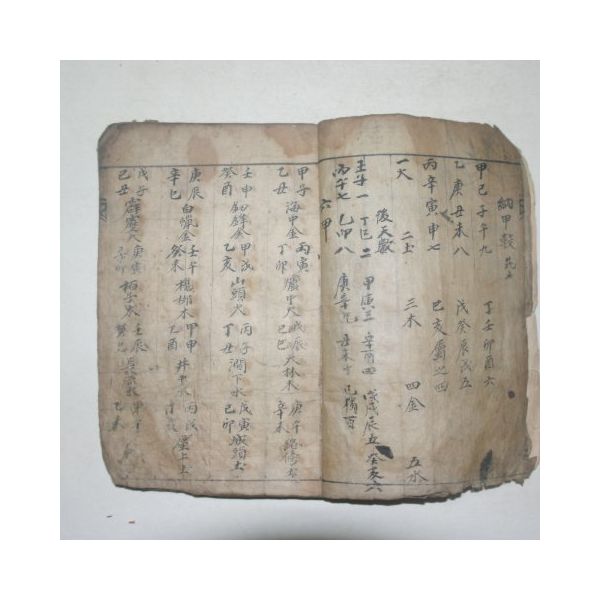 納甲數
甲己子午九
乙庚丑未八
丙辛寅申七
丁壬卯酉六
戊癸辰戌五
巳亥屬之四
一火 二土 三木 四金 五水
後天數
壬子一 丁巳二 甲寅三 辛酉四 戊戌辰五 癸亥六
丙午七 乙卯八 庚辛 丑未十
六甲
甲子 乙丑 海中金 丙寅 丁卯 爐中火 戊辰 己巳 大林木 庚午 辛未 路傍土
壬申 癸酉 釼鋒金 甲戌 乙亥 山頭火 丙子 丁丑 澗下水 戊寅 己卯 城頭土
庚辰 辛巳 白蠟金 壬午 癸未 楊柳木 甲申 乙酉 井中水 丙戌 屋上土
戊子 己丑 霹靂火 庚寅 辛卯 松子木 壬辰 癸巳